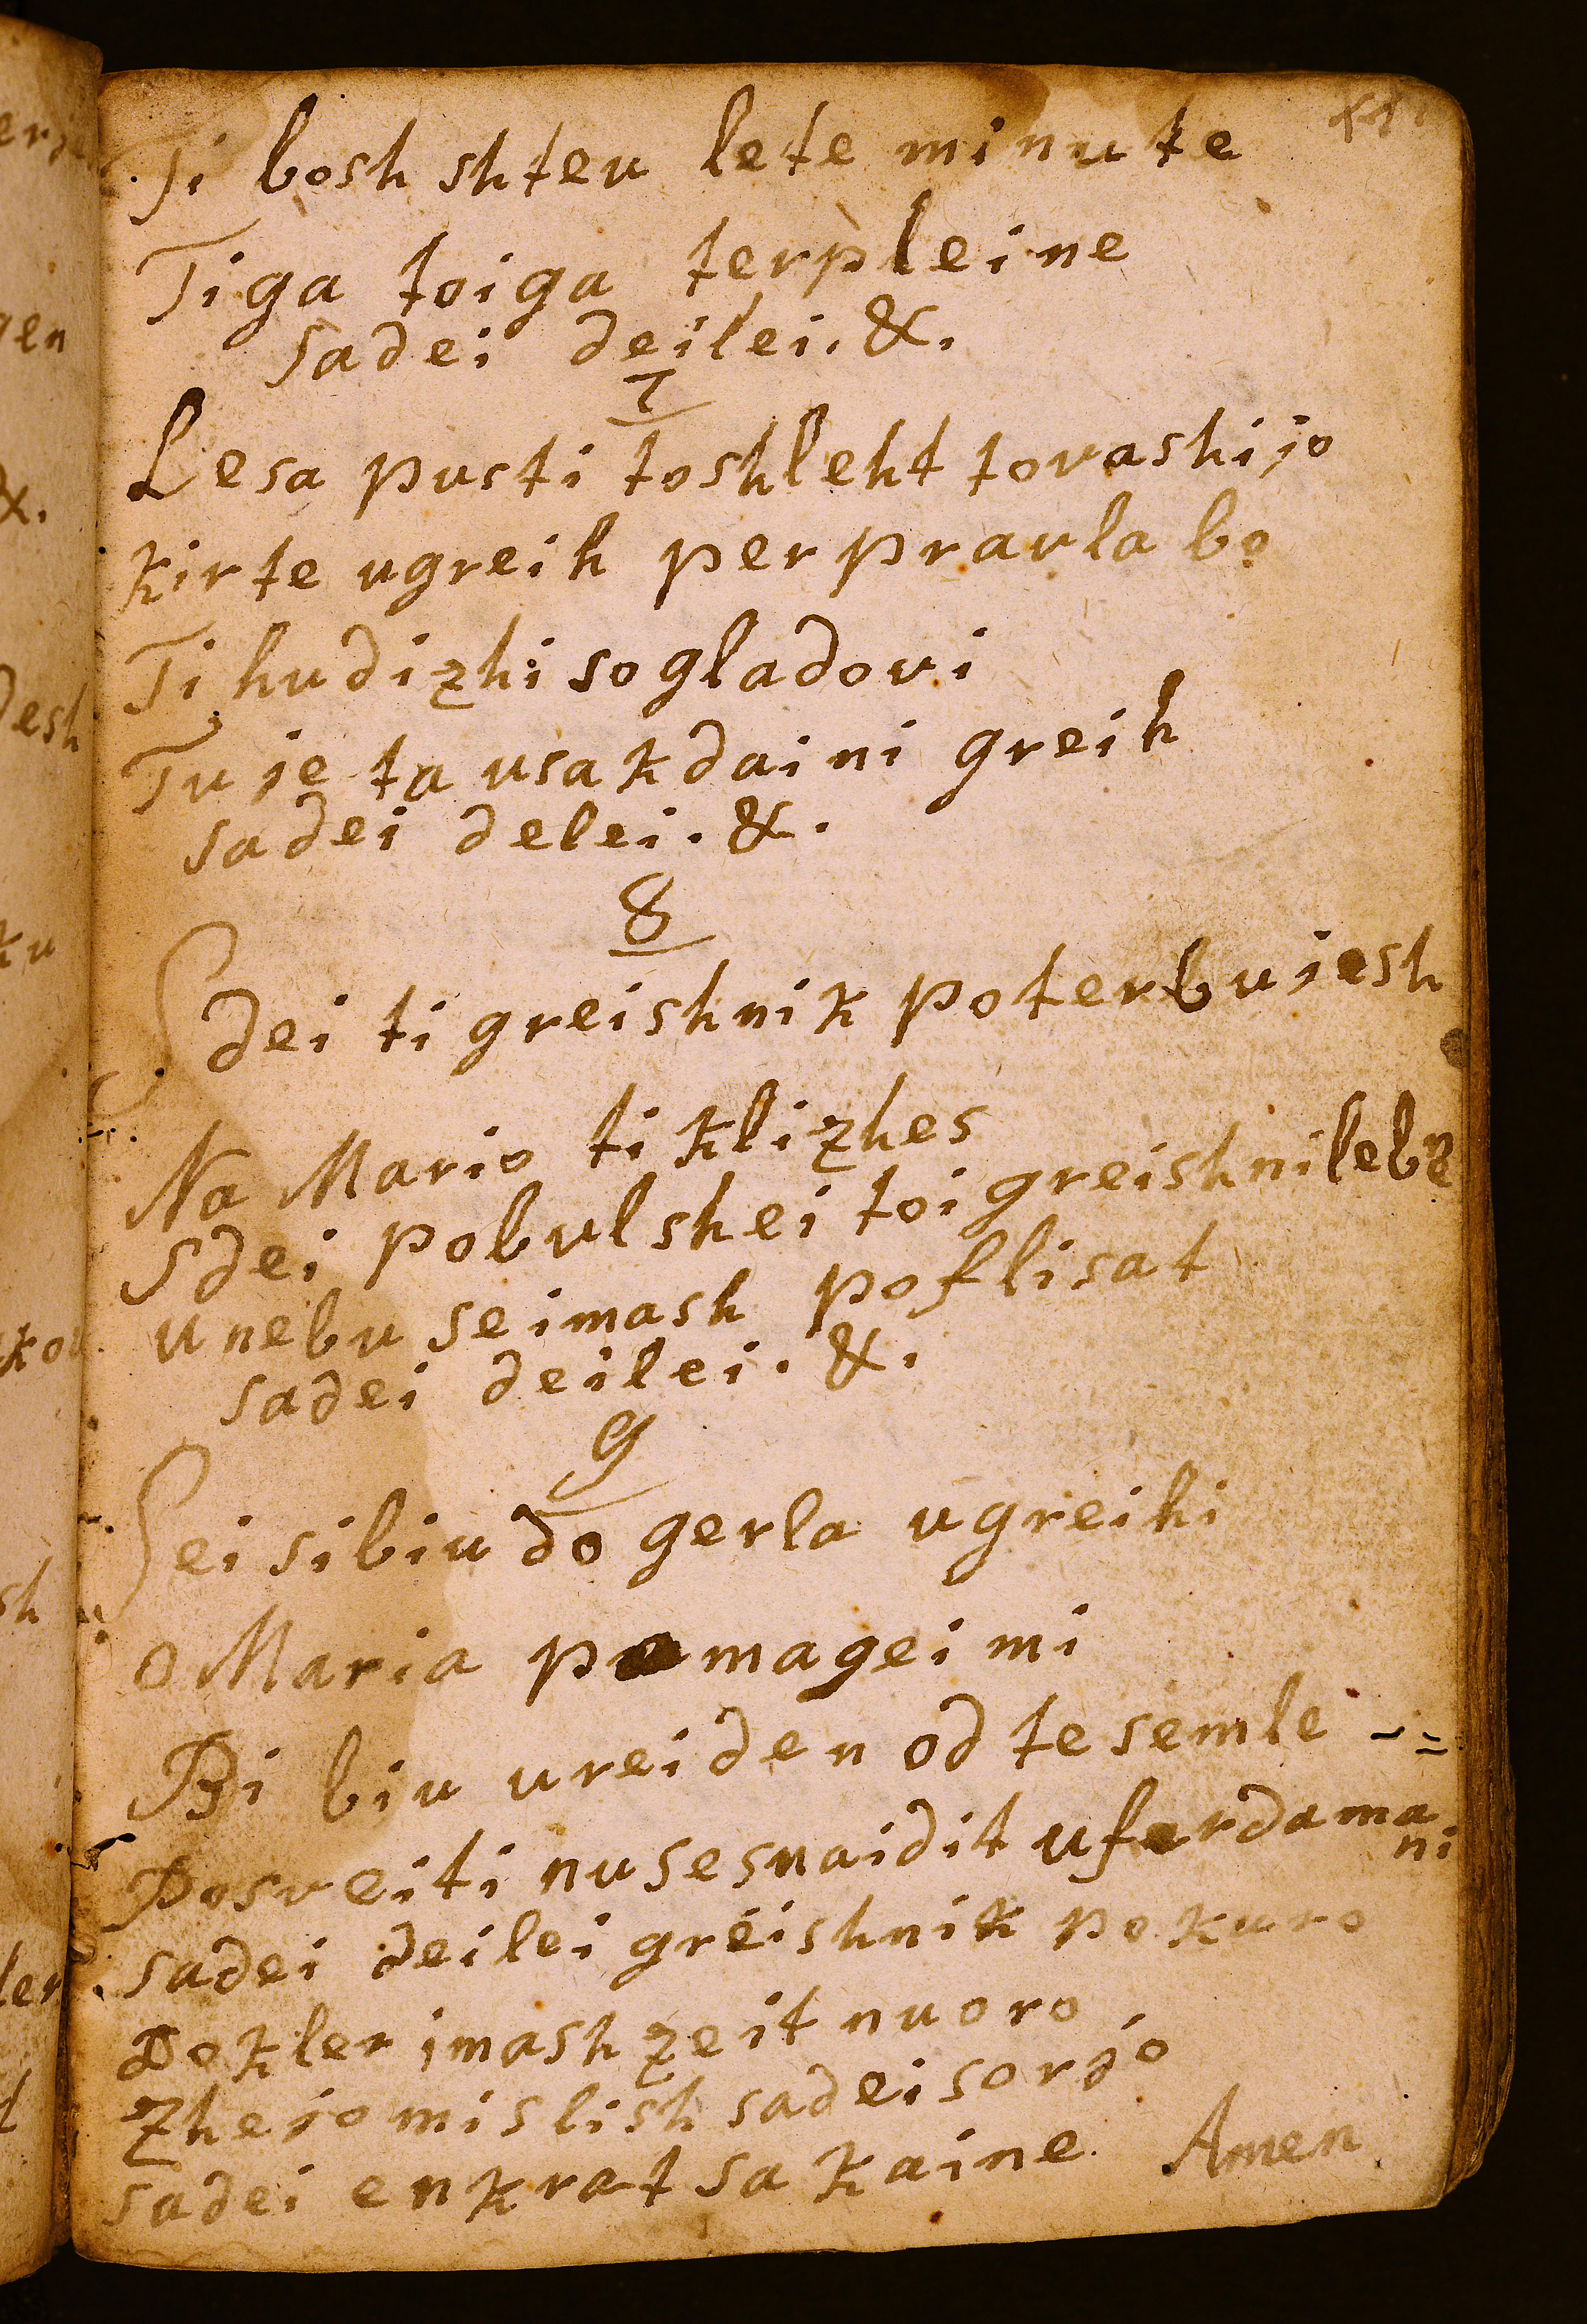 Ti bosh shteu lete minute
Tiga toiga terpleine
sadei deilei. &.
7
Lesa pusti toshleht tovashijo
kirte ugreih perpraula bo
Ti hudizhi so gladovi
Tu je ta usakdaini greih
sadei delei. &.
8
Sdei ti greishnik poterbujesh
Na Mario ti klizhes
Sdei pobulshei toi greishni lebn
u nebu se imash poflisat
sadei deilei. &.
9
Sei si biu do gerla ugreihi
O Maria pomagei mi
Bi biu ureiden od te semle
Posveiti nu sesnaidit ufardama
ni
sadei deilei greishnik pokuro
Dokler imash zeit nu oro
Zhe jo mislish sadei sorjo
sadei enkrat sa kaine. Amen